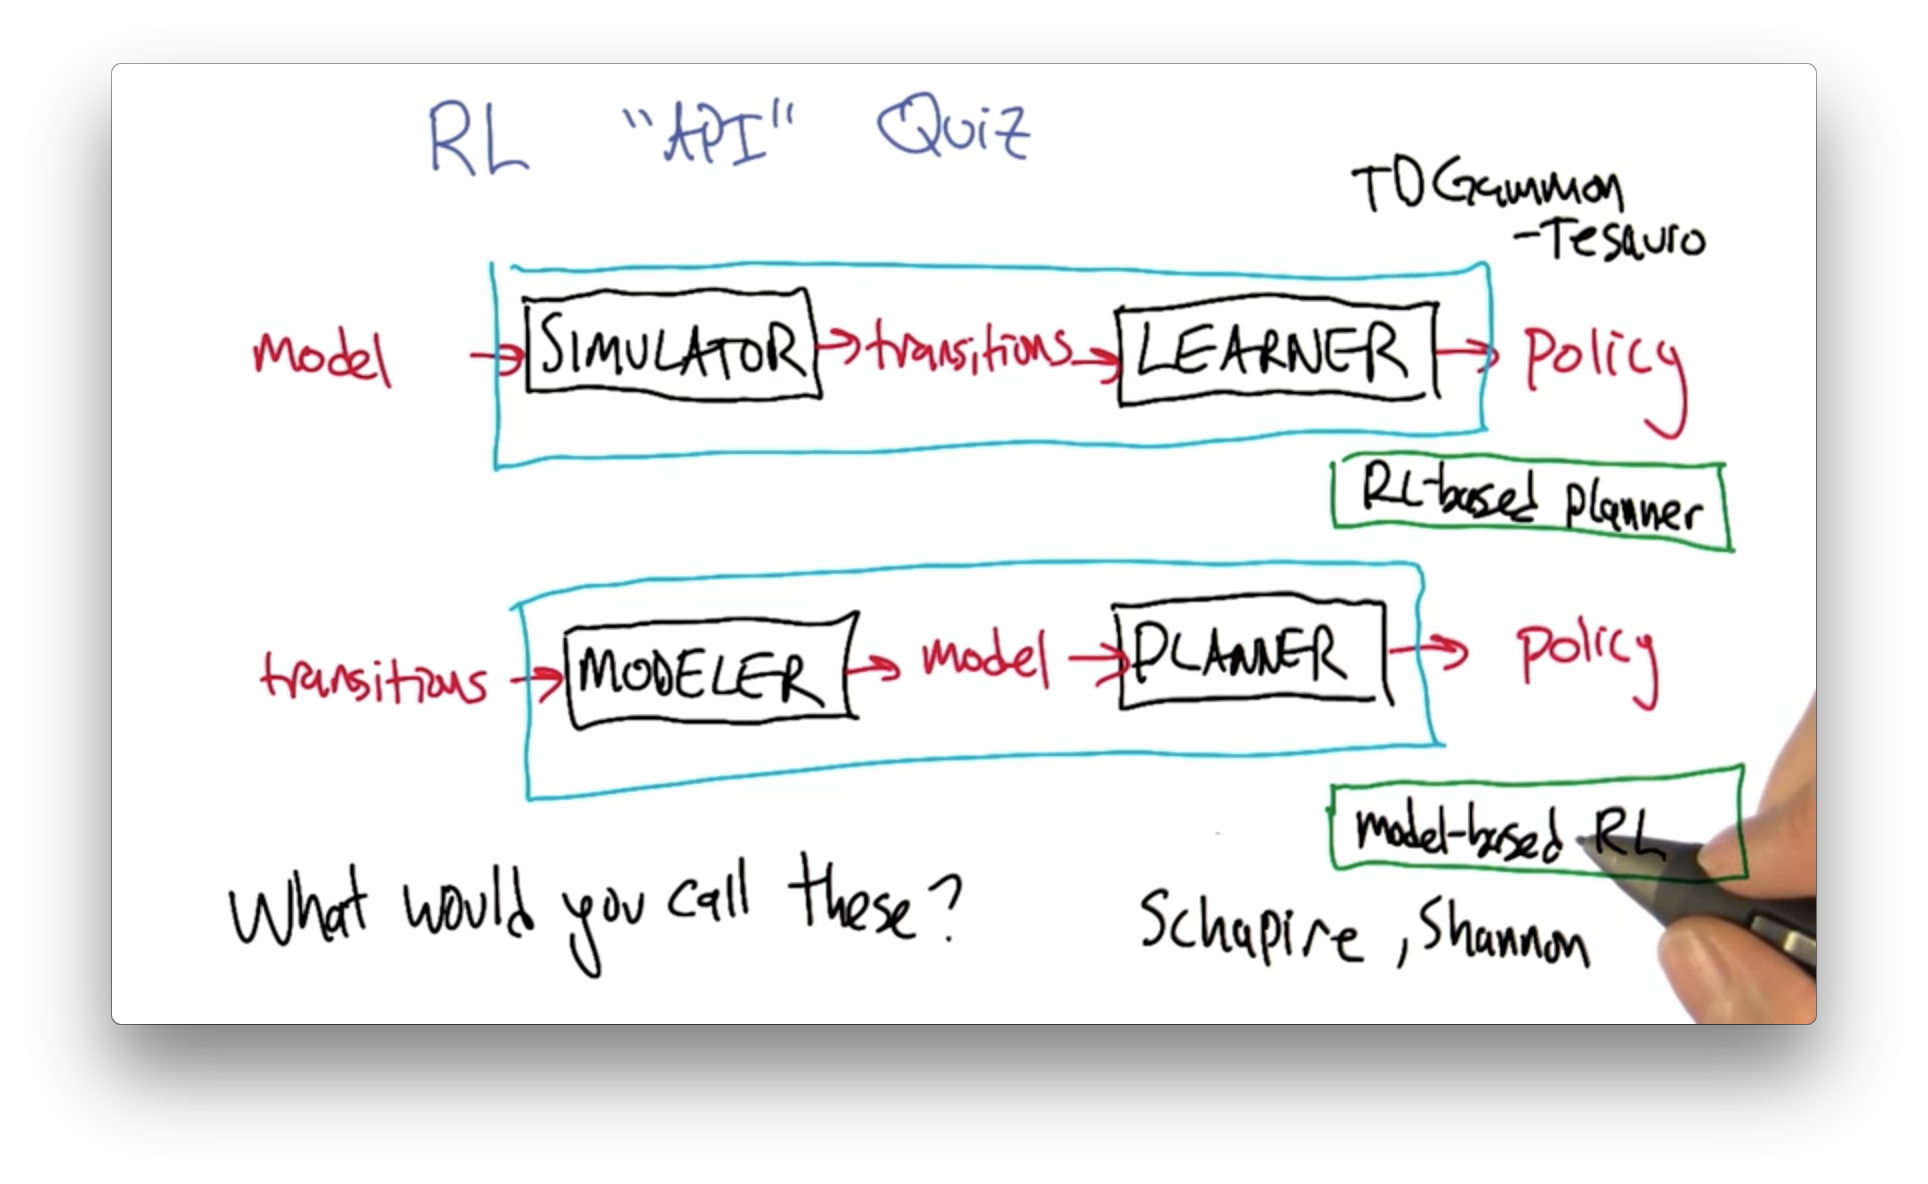 RL "API" Quiz
TDGammon
-Tesauro
model → SIMULATOR → transitions → LEARNER → policy
RL-based planner
transitions → MODELER → model → PLANNER → policy
model-based RL
What would you call these?
Schapire, Shannon